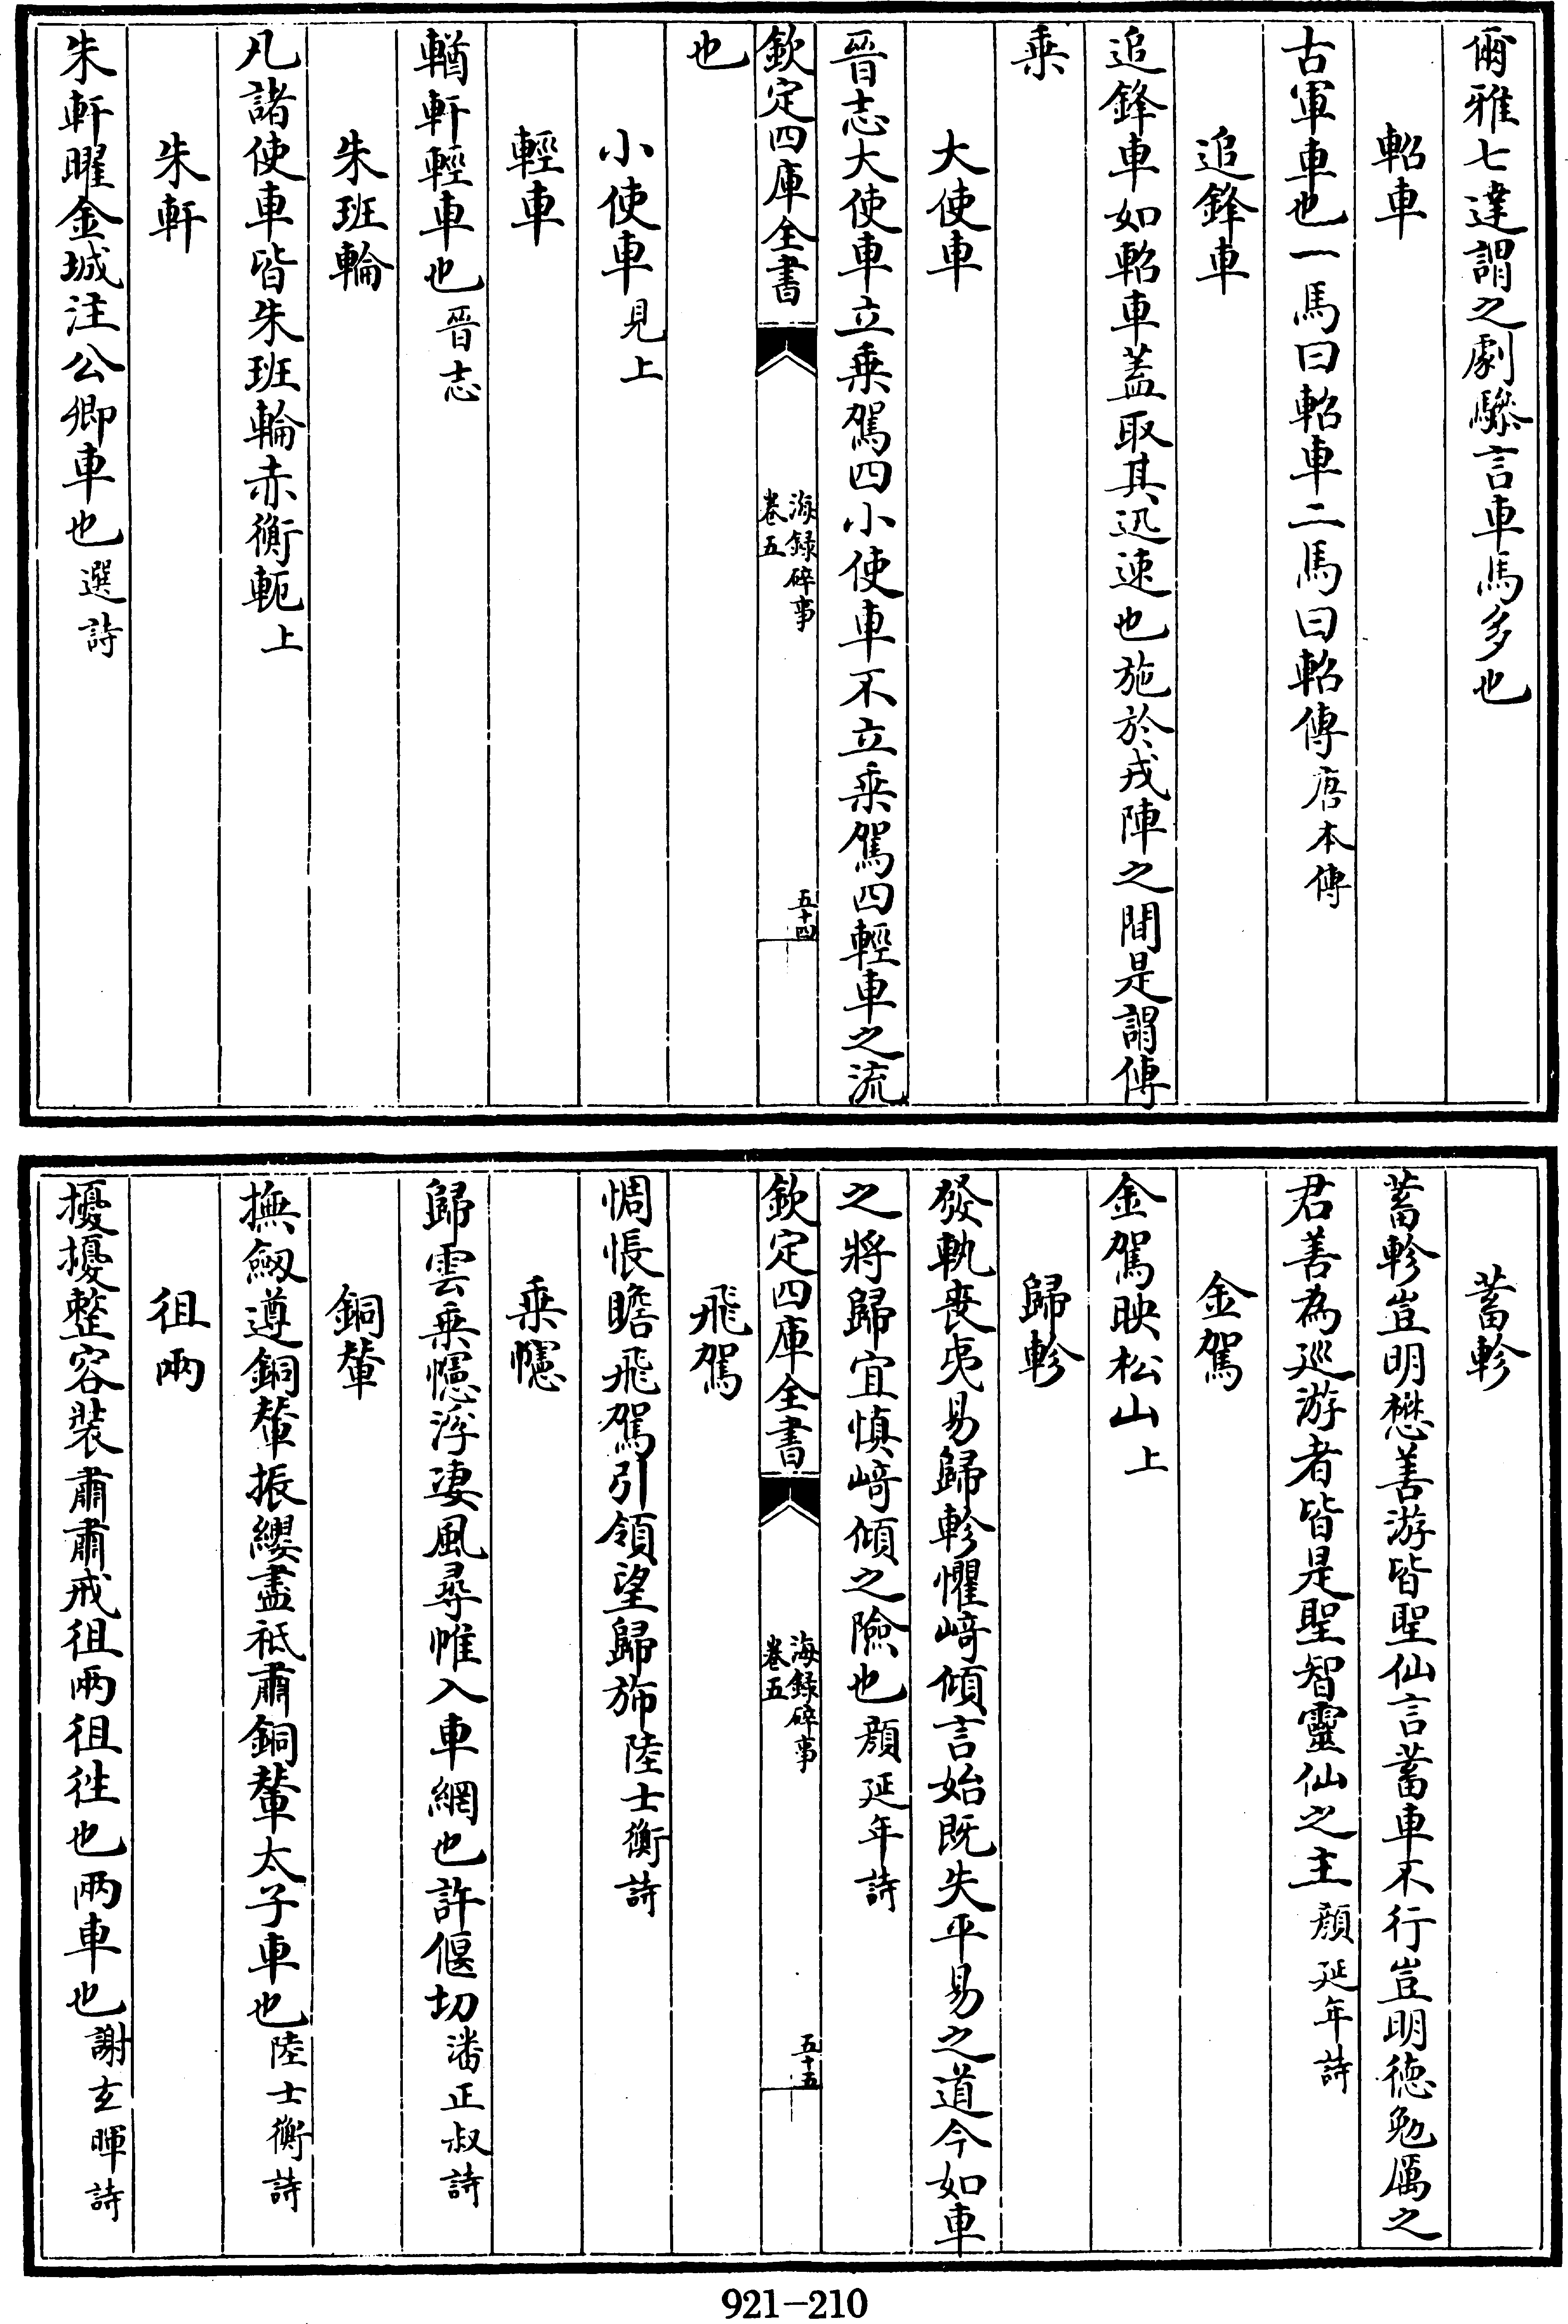 爾雅七達謂之劇驂言車馬多也
軺車
古軍車也一馬曰軺車二馬曰軺傳唐本傳
追鋒車
追鋒車如軺車蓋取其迅速也施於戎陣之間是謂傳
乗
大使車
晉志大使車立乗駕四小使車不立乗駕四輕車之流
欽定四庫全書
海録碎事
卷五
五十四
也
小使車見上
輕車
輶軒輕車也晉志
朱班輪
凡諸使車皆朱班輪赤衡軛上
朱軒
朱軒曜金城注公卿車也選詩
蓄軫
蓄軫豈明懋善游皆聖仙言蓄車不行豈明德勉厲之
君善為巡游者皆是聖智靈仙之主顔延年詩
金駕
金駕映松山上
歸軫
發軌喪夷易歸軫懼﨑傾言始既失平易之道今如車
之將歸宜慎﨑傾之險也顔延年詩
欽定四庫全書
海録碎事
卷五
五十五
飛駕
惆悵瞻飛駕引領望歸斾陸士衡詩
乗幰
歸雲乗幰浮凄風尋帷入車網也許偃切潘正叔詩
銅輦
撫劔遵銅輦振纓盡祗肅銅輦太子車也陸士衡詩
徂兩
擾擾整容裝肅肅戒徂兩徂徃也兩車也謝玄暉詩
921-210